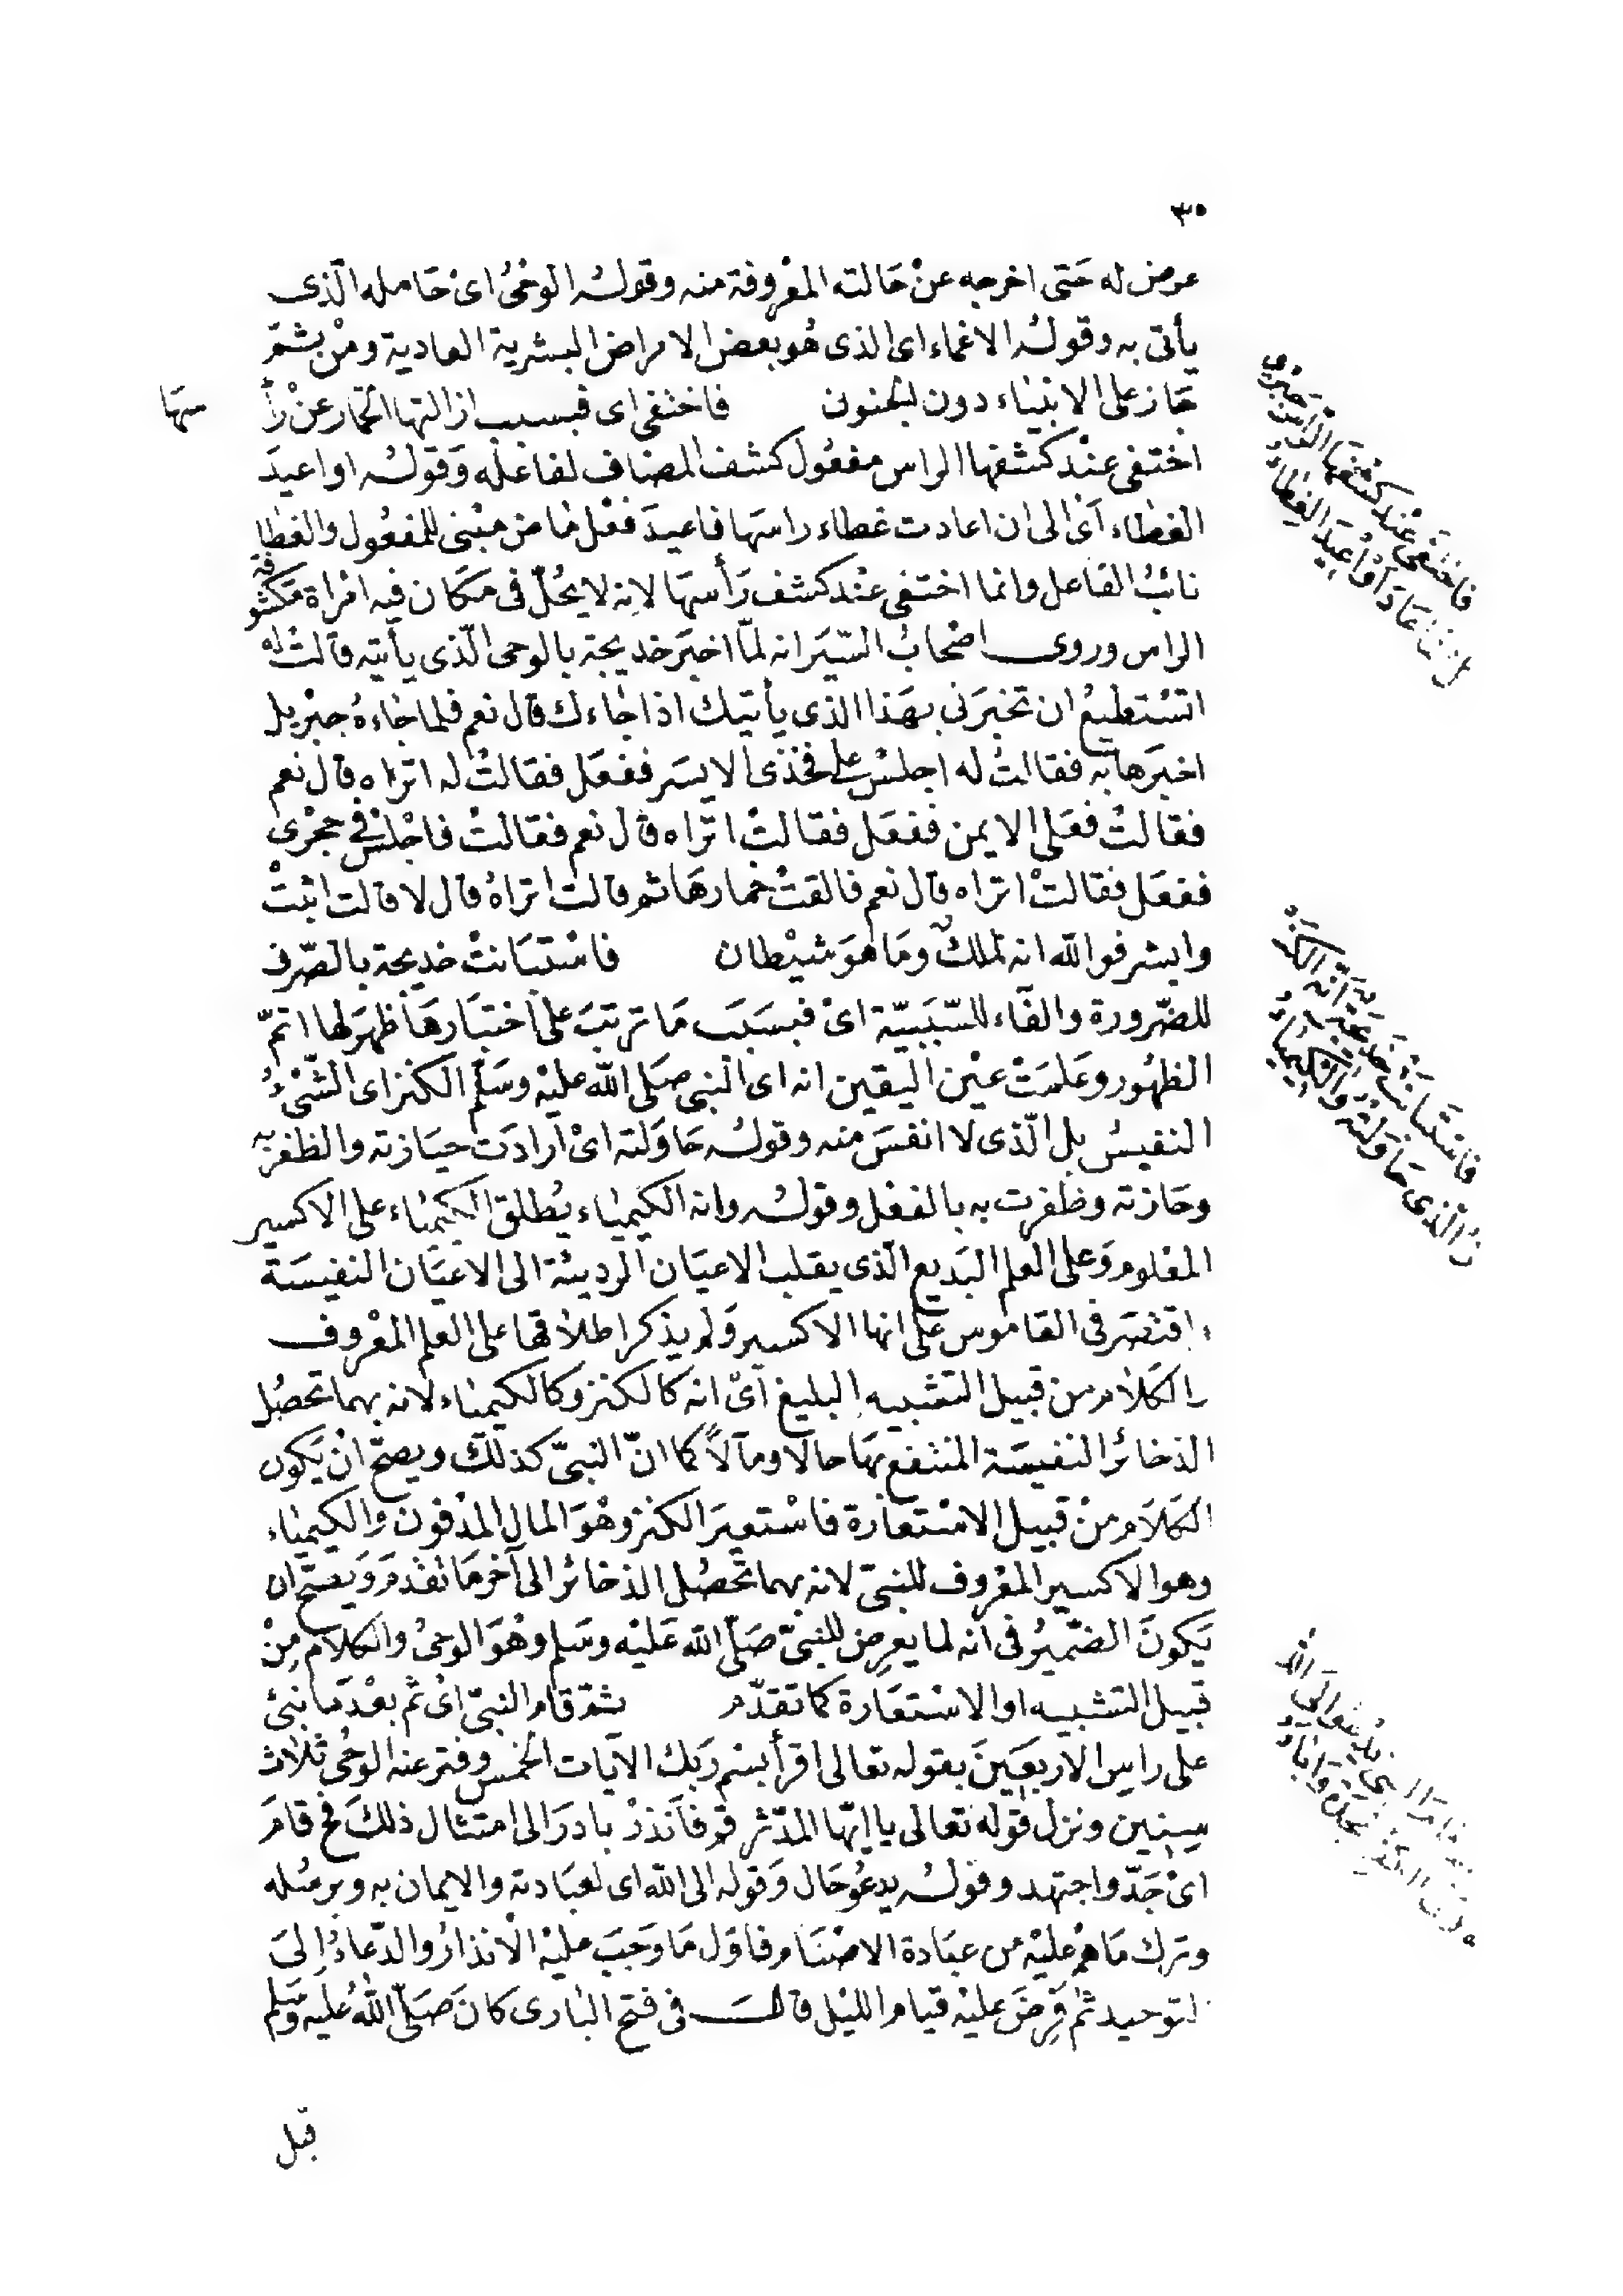 ٣٠
عرض له حَتى اخرجه عنْ حَالته المعْروفة منه وقولـه الوحْىُ اىْ حَامله الّذى
يأتى به وقولـهُ الاغماء اى الذى هُو بعض الامراض البشرية العادية ومنْ ثمّ
جَاز على الانبيٰاء دون الجنون فاختفى اى فبسبب ازالتها الخمار عنْ رأ
سهَا
اختفى عنْد كشفها الراس مفعُول كشف المضاف لفاعله وَقولـه او اعيدَ
الغطاء اىْ الى ان اعادت غطاء راسهَا فاعيدَ فعْل مٰاض مبْنى للمفعُول والغطا
نائبُ الفاعل وانما اختفى عنْد كشف رَأسهَا لانه لا يحُلّ فى مكَان فيه امْراة مَكشو
فة
الراس وروى اصْحابُ السّيَر انه لمّا اخبَر خديجة بالوحى الّذى يأتيه قالتْ له
اتسْتطيعُ ان تخبرَنى بهَذا الذى يأتيك اذا جٰاءك قال نعم فلما جٰاءهُ جبْريل
اخبرَها به فقالتْ له اجلسْ على فخذى الايسَر ففعَل فقالتْ له اتراه قال نعم
فقالتْ فعَلى الايمن ففعَل فقالتْ اتراه قال نعم فقالتْ فاجْلسْ فى حجْرى
ففعَل فقالتْ اتراه قال نعم فالقتْ خمارهَا ثم قالت اتراهُ قال لا قالت اثبتْ
وابشر فوالله انه لملكٌ ومَا هوَ شيْطان فاسْتبَانتْ خديجة بالصّرف
للضّرورة والفآء للسّبَبيّة اىْ فبسَبَب مَا ترتبَ على اختبَارهَا ظهرَ لها اتمّ
الظهُور وعلمَتْ عيْن اليقين انه اى النبى صَلى الله عليْه وسَلم الكنْز اى الشّىْءُ
النفيسُ بل الّذى لا انفسَ منه وقولـه حَاوَلته اىْ ارادَت حيَازته والظفرَ به
وحَازته وظفرت به بالفعْل وقولـه وانه الكيميٰاء يُطلق الكيميٰاء على الاكسير
المعْلوم وَعلى العلم البَديع الّذى يقلب الاعيَان الرديئة الى الاعيَان النفيسَة
واقتصَر فى القاموس على انها الاكسير وَلم يذكر اطلاقها على العلم المعْروف
والكَلام من قبيل التشبيه البليغ اىْ انه كالكنز وكالكيميٰاء لانه بهما تحصُل
الذخائر النفيسَة المنتفع بهَا حالا ومآلاً كما انّ النبىّ كذلك ويصحّ انْ يَكون
الكَلاَم منْ قبيل الاسْتعَارة فاسْتعيرَ الكنز وهْوَ المال المدْفون والكيميٰاء
وهو الاكسير المعْروف للنبىّ لانه بهما تحصُل الذخائر الى آخر مَا تقدمَ وَيصحّ ان
يَكونَ الضّميرُ فى انه لما يعرِض للنبىّ صَلّى الله عَليْه وسَلم وهُوَ الوحىُ والكلاَم مِنْ
قبيل التشبيه او الاسْتعَارة كما تقدّم ثمّ قام النبىّ اىْ ثم بعْدَ مَا نبئ
على راس الاربَعينَ بقوله تعالى اقرأ بسْم رَبك الآيات الخمس وفتر عنه الوحْى ثلاث
سِنين ونزل قوله تعالى يا ايّها المدّثر قم فاَنذرْ بادرَ الى امتثال ذلكَ فح قامَ
اىْ جَدّ واجتهد وقولـه يدعُو حَال وَقوله الى الله اى لعبَادته والايمان به وبرسُله
وترك مَا همْ عليْه من عبَادة الاصْنَام فاوّل مَا وَجَبَ عليْه الْانذارُ والدّعاءُ إلىَ
التوحيد ثم فُرِضَ عليْه قيام الليْل قالـــ فى فتح البٰارى كانَ صَلّى اللهُ عليَه وَسَلم
قبل
فاختفى عنْد كشْفهَا الرّاسَ جبْرى
ل فمَا عَادَ أوْ اُعِيدَ الغِطاءُ
فاسْتبَانتْ خَديجَةٌ انّهُ الكنْزُ
الّذى حَاوَلتْهُ وَالكيميَاءُ
ثمّ قامَ النبىُّ يَدْعُو الىَ اللهِ